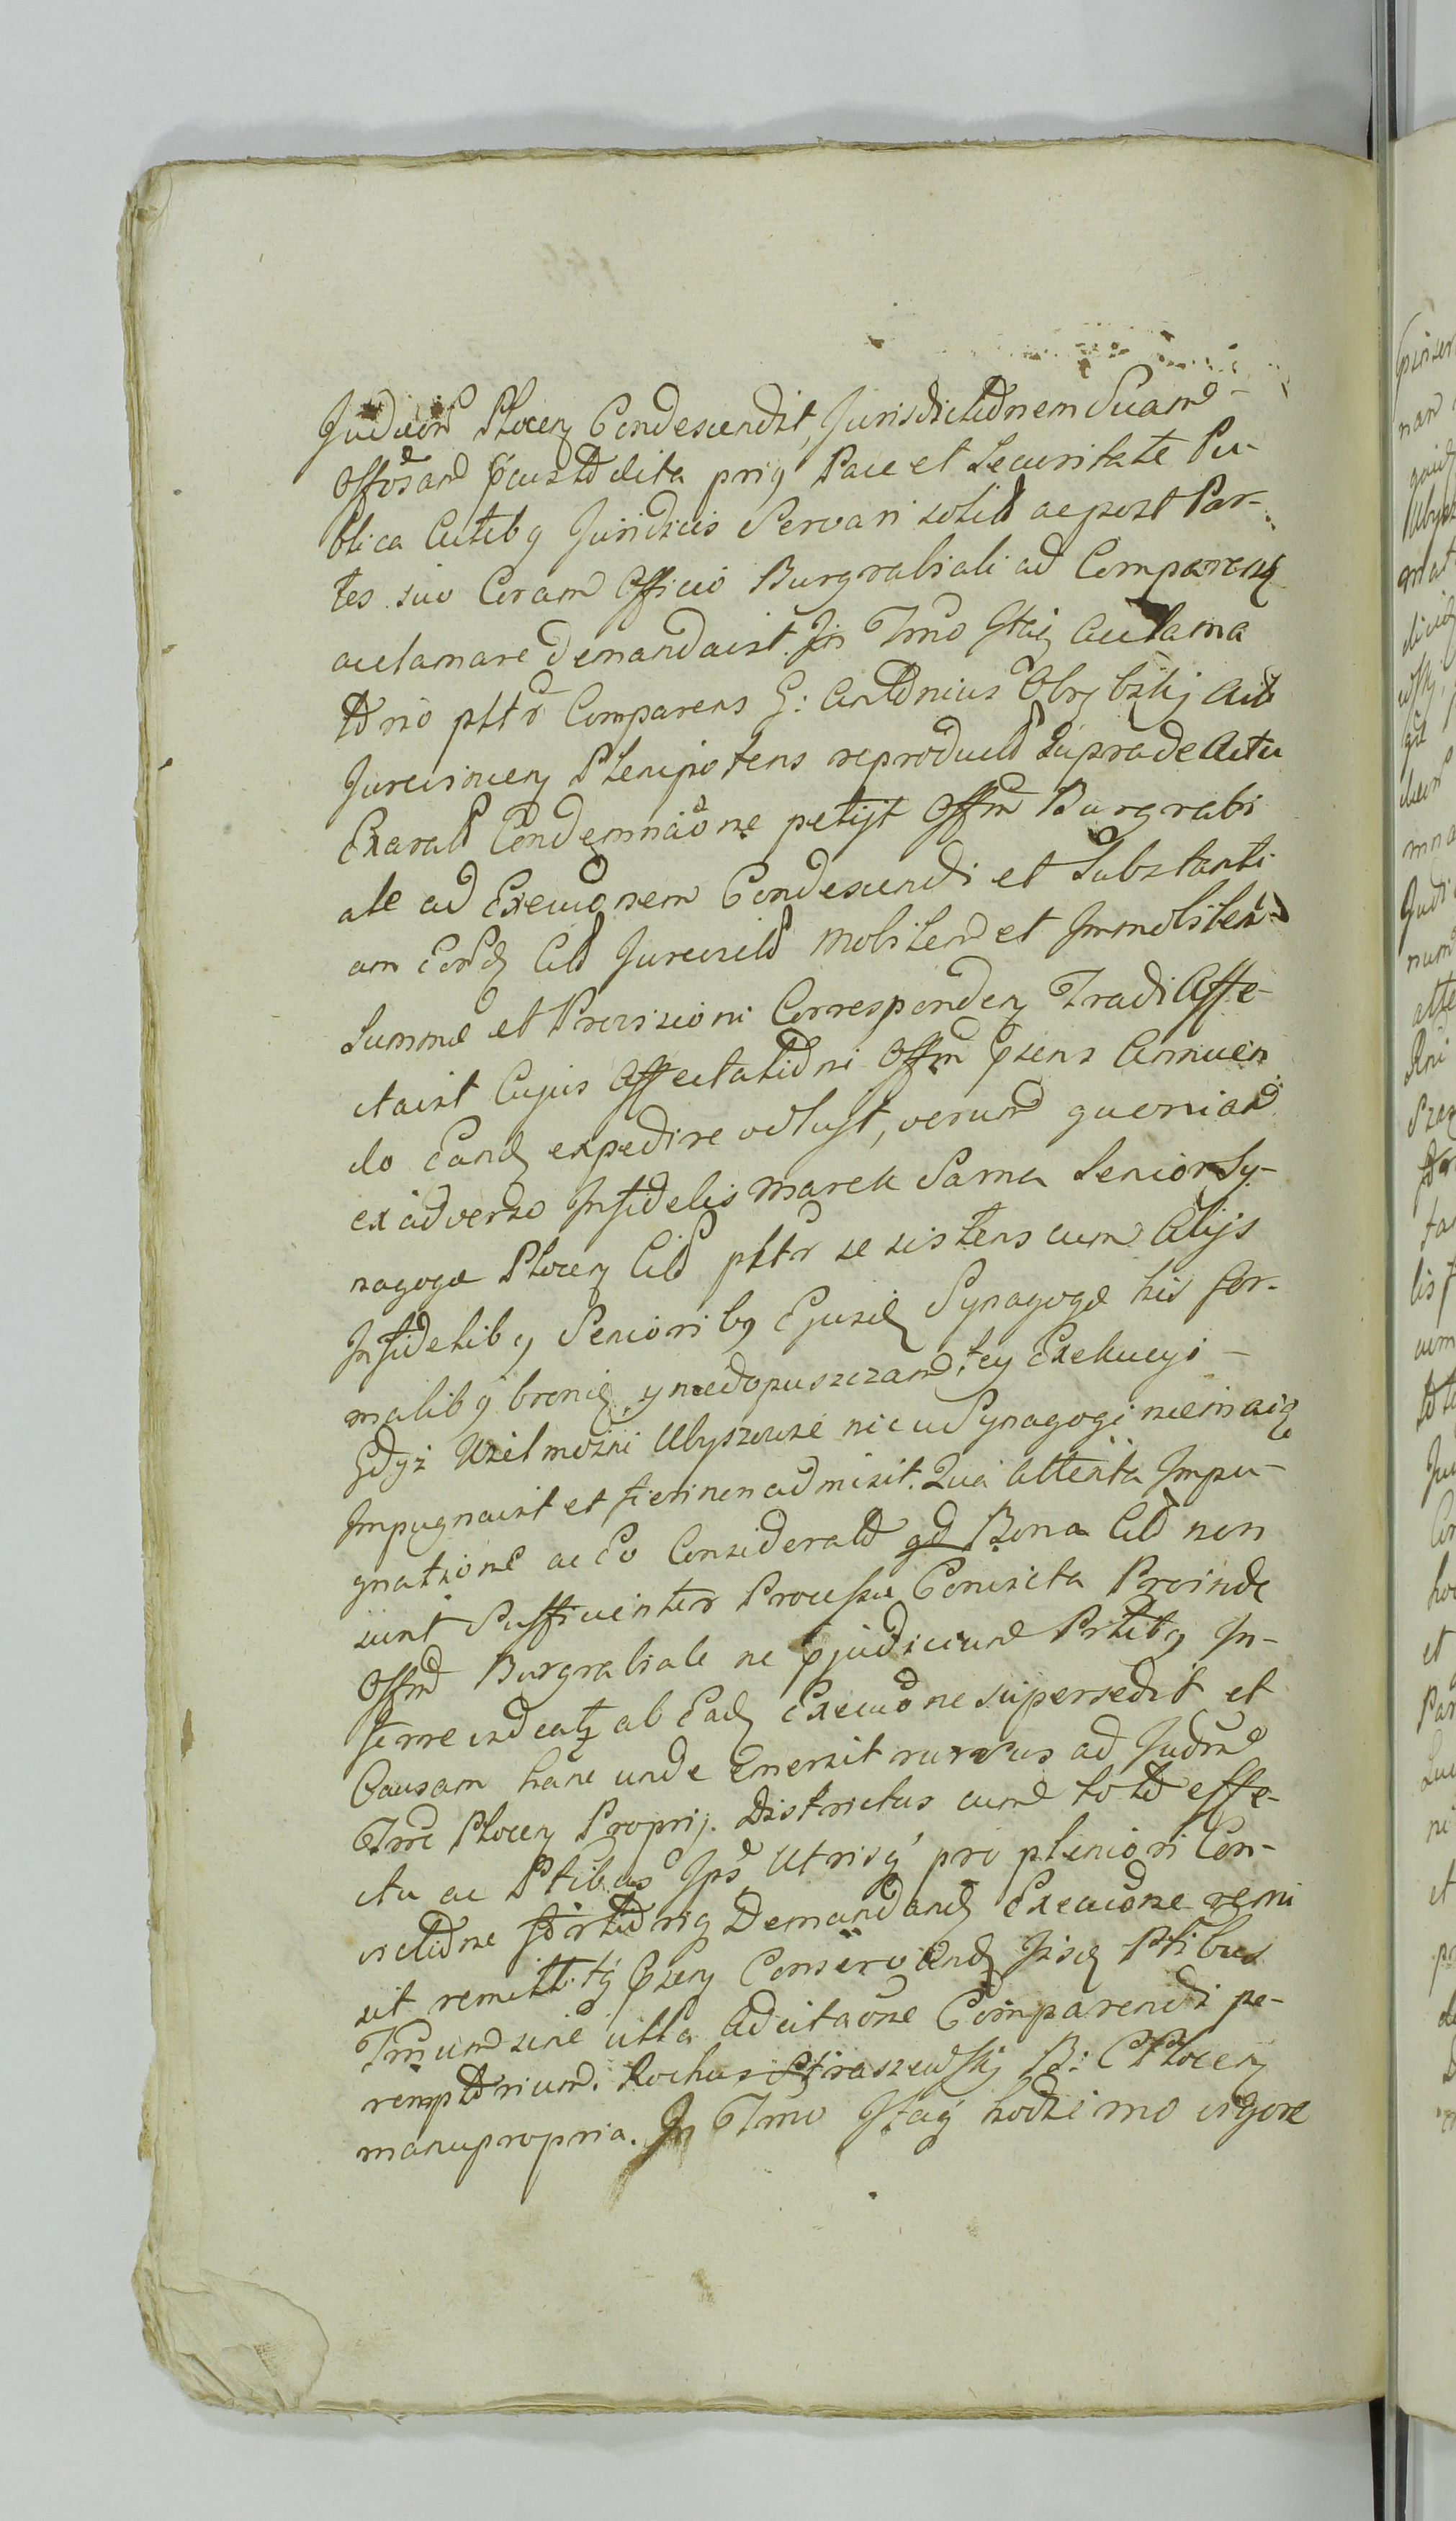 Judaeor Plocen Condescendit, Jurisdictionem Suam
Offosam fundit dita prig Pace et Securitate Pu-
blica Actibg Juridicis Servari solit ac post Par-
tes suo Coram Officio Burgrabiali ad Comparend
acclamare demandavit. In Tmo Itaq Acclama
torio pltr Comparens G: Antonius Obrybskij Act
Jurevincen Plenipotens reproducta Supra de Actu
Exarata Condemnaone petijt Offm Burgrabi
ale ad Execuonem Condescendi et Substanti
am Eord Citt Jurevict mobilem et Immobilem
Summae et Provisioni Corresponden Tradi Affe-
ctavit Cujus Affectationi Offm psens Annuen
do Eand expedire voluit, verum quoniam
ex adverso Infidelis Marek Sama Senior Sy-
nagogae Plocen Citt pltr se sistens cum Alijs
Infidelibg Senioribg Ejusd Synagogae his for-
malibg bronię, y niedopuszczam tey Exekucyi
Gdyż Wielmożni Ubyszowie nic u Synagogi niemaią
Impugnavit et fieri non admisit. Qua Attenta Impu-
gnatione ac Eo Considerato qd Bona Citt non
sunt Sufficienter Processu Convicta Proinde
Offm Burgrabiale ne pjudicium Ptibg In-
ferre videatg ab Ead Execuone supersedit et
Causam hanc unde Emersit rursus ad Judm
Trre Plocen Proprij. Districtus cum toto effe-
ctu ac Ptibus Ips Utrisq pro pleniori Con-
victione fortiorig Demandand Execuone remi
sit remittitg psen Conservand Iisd Ptibus
Tmum sine ulla Adcitaone Comparendi pe-
remptorium. Rochus Straszewskij B: C Plocen
manupropria. In Tmo Itaq hodierno vigore